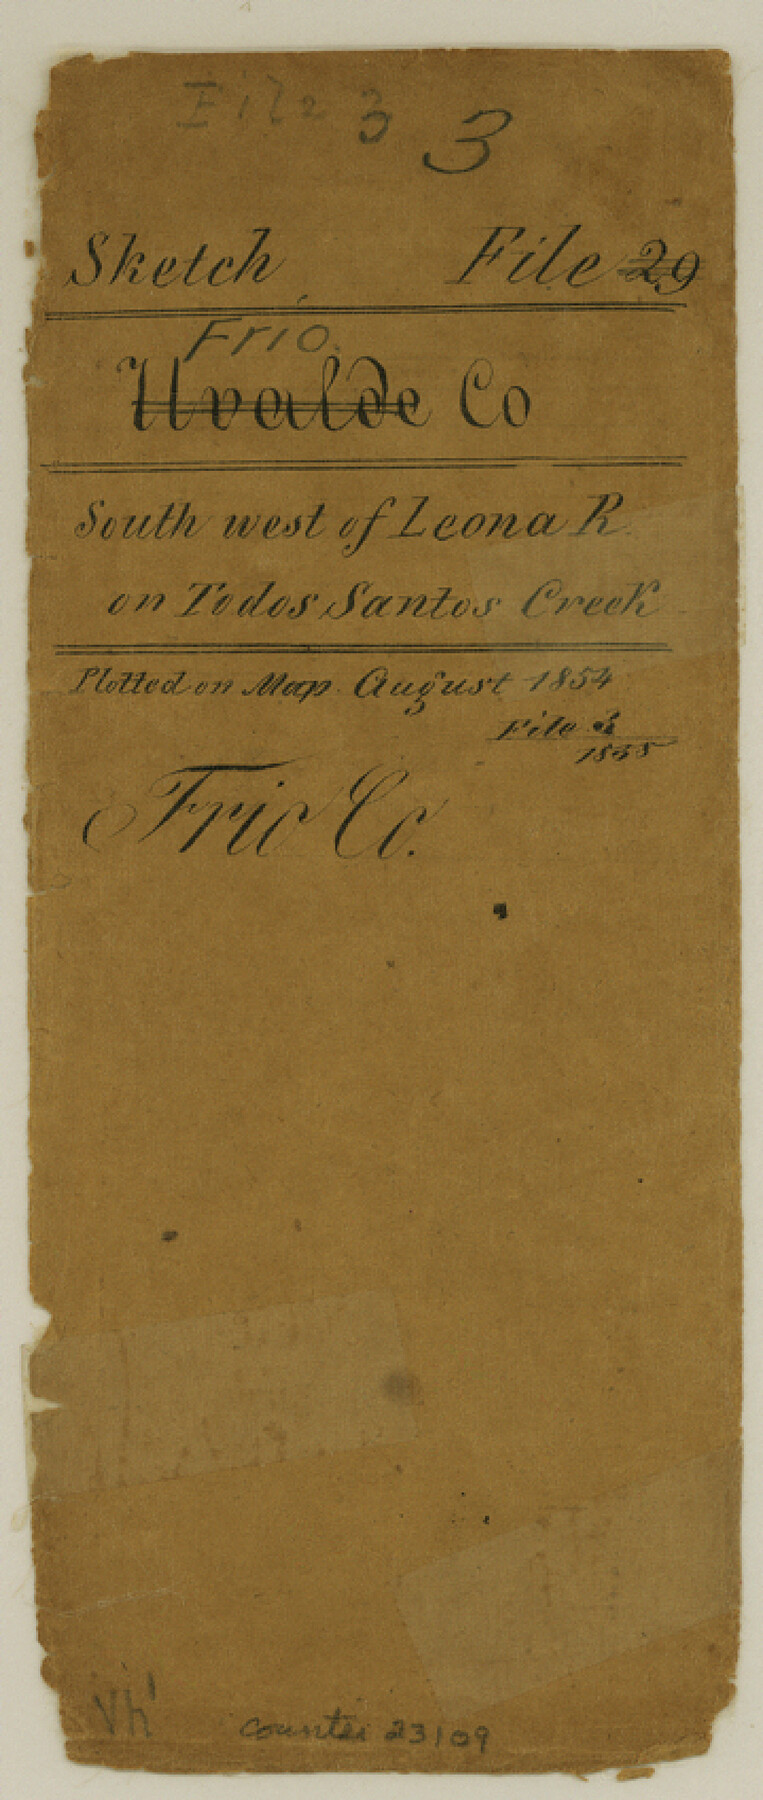 File 3 3
Sketch File 29
Frio
Uvalde Co
South west of Leona R
on Todos Santos Creek
Plotted on Map August 1854
File 3
Frio Co.
counter 23109